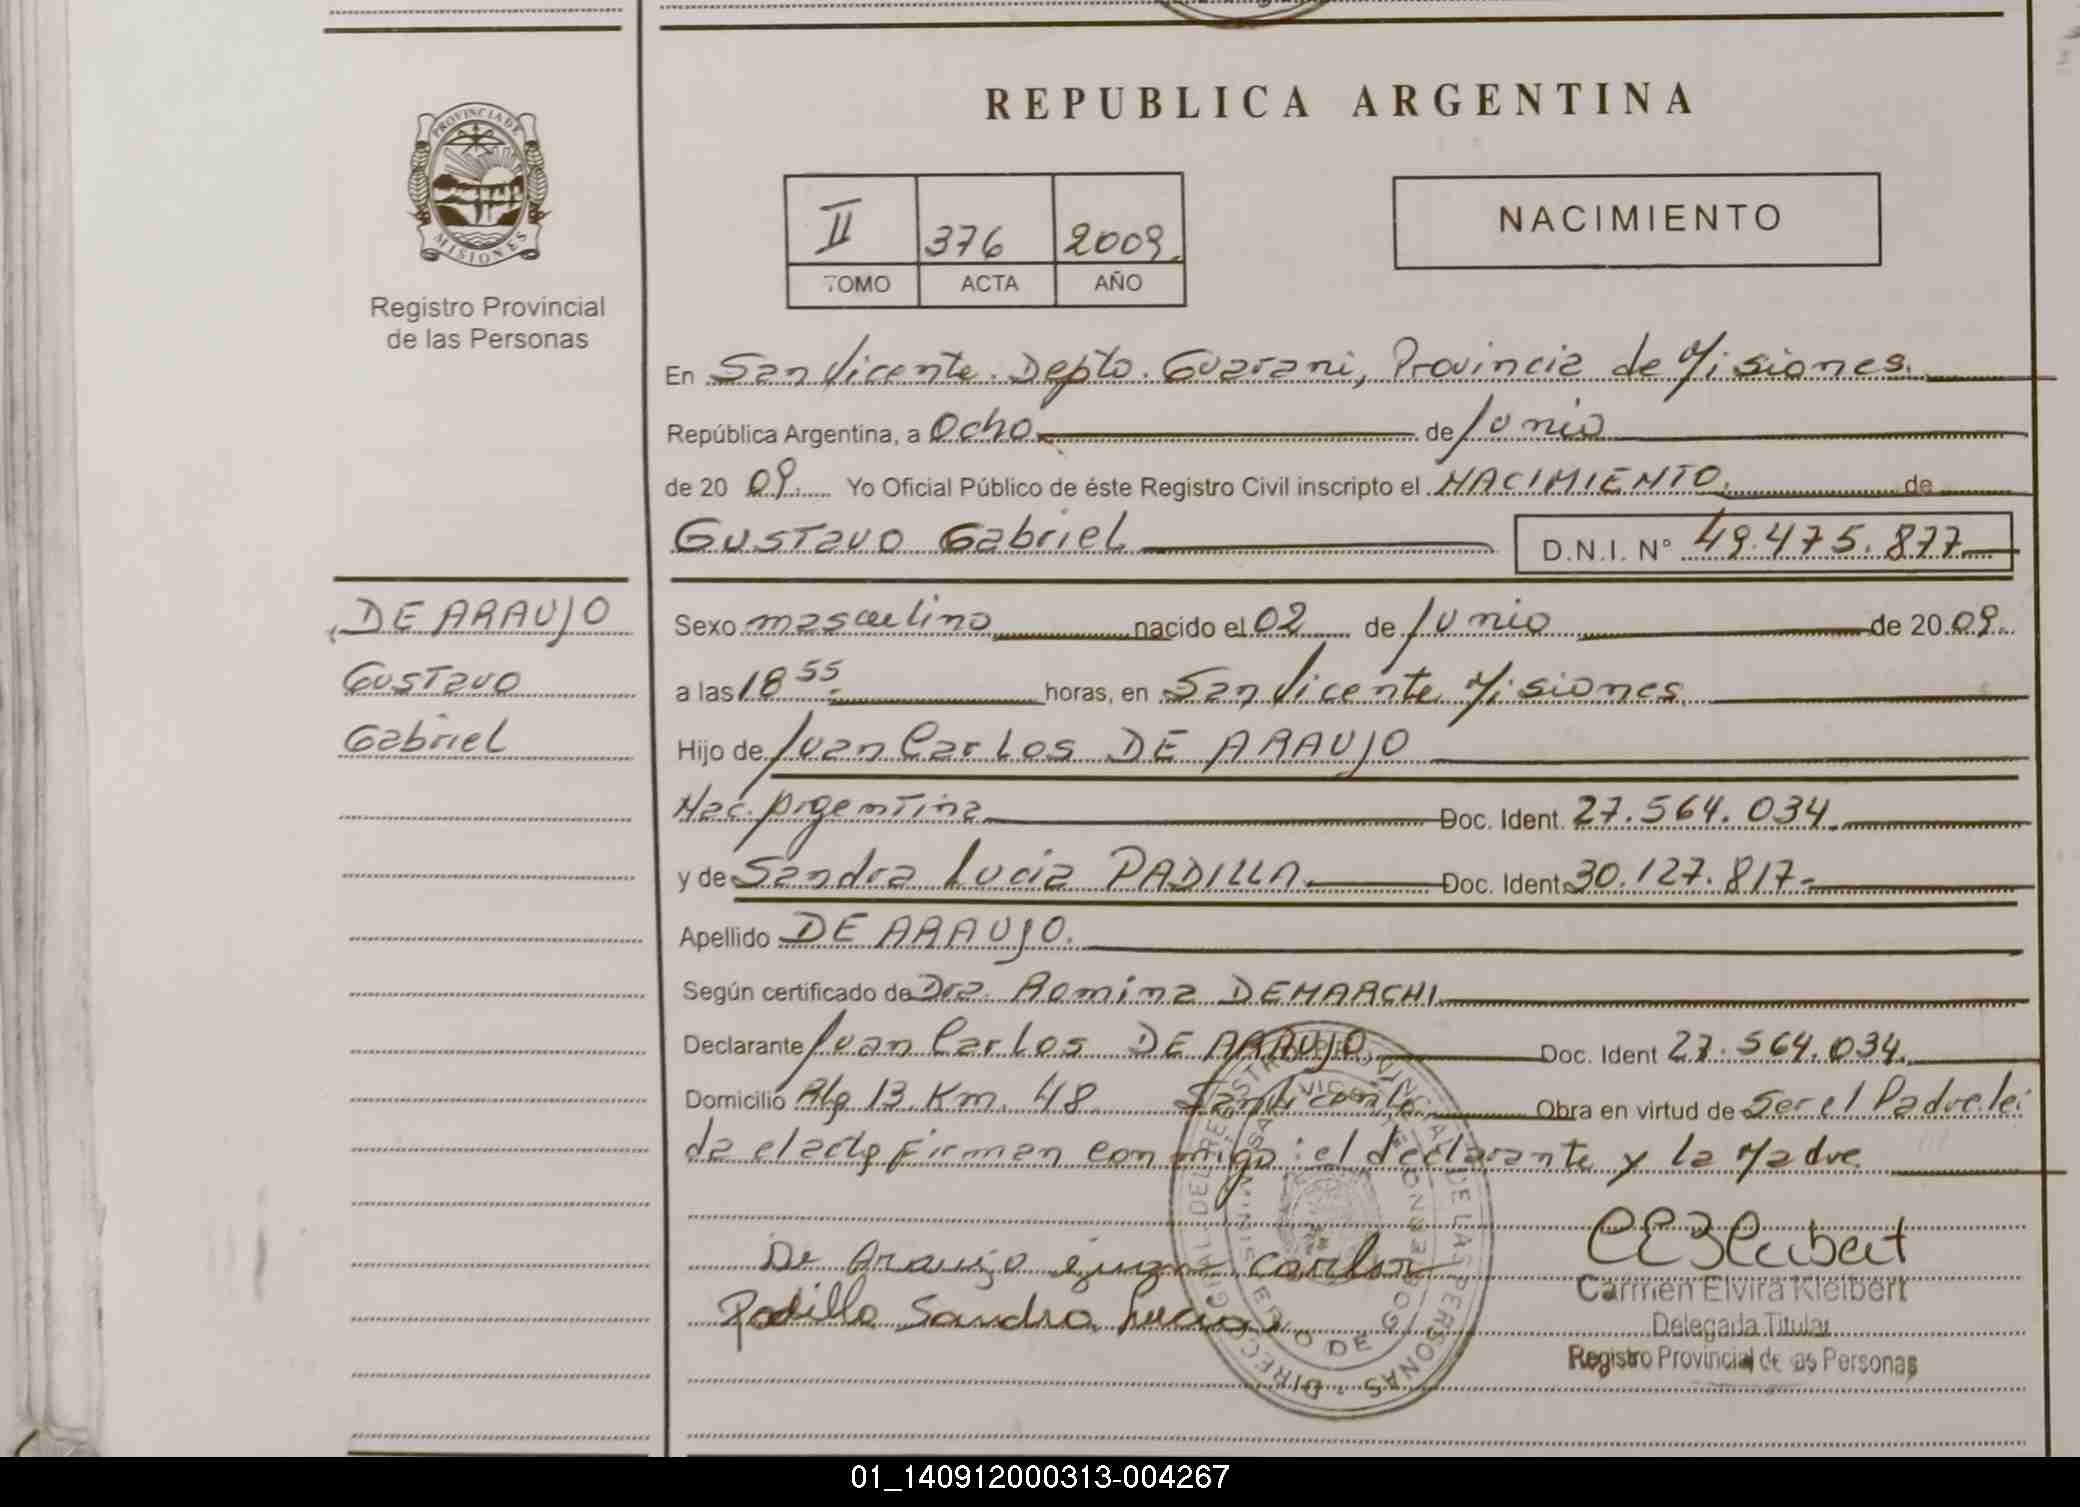 REPUBLICA ARGENTINA
PROVINCIA DE
MISIONES
Registro Provincial
de las Personas
II 376 2009.
TOMO ACTA AÑO
NACIMIENTO
En San Vicente. Depto. Guarani, Provincia de Misiones.
República Argentina, a Ocho de Junio
de 20 09. Yo Oficial Público de éste Registro Civil inscripto el NACIMIENTO. de
Gustavo Gabriel D.N.I. N° 49.475.877
DE ARAUJO
Gustavo
Gabriel
Sexo masculino nacido el 02 de Junio de 20 09.
a las 18 55 horas, en San Vicente Misiones
Hijo de Juan Carlos DE ARAUJO
Nac. Argentina Doc. Ident. 27.564.034.
y de Sandra Lucia PADILLA. Doc. Ident. 30.127.817-
Apellido DE ARAUJO.
Según certificado de Dra. Romina DEMARCHI
Declarante Juan Carlos DE ARAUJO Doc. Ident 27.564.034.
Domicilio Alg 13. Km. 48 San Vicente Obra en virtud de Ser el Padre. lei
da el acta firman conmigo: el declarante y la Madre
De Araujo Juan Carlos
Padilla Sandra Lucia
DIRECC GRAL DEL REGISTRO PROVINCIAL DE LAS PERSONAS
MINISTERIO DE GOBIERNO
SAN VICENTE
Carmen Elvira Kleibert
Delegada Titular
Registro Provincial de las Personas
01_140912000313-004267